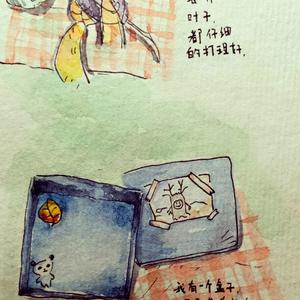 叶子,
都仔细
的打理好.
我有一个盒子,